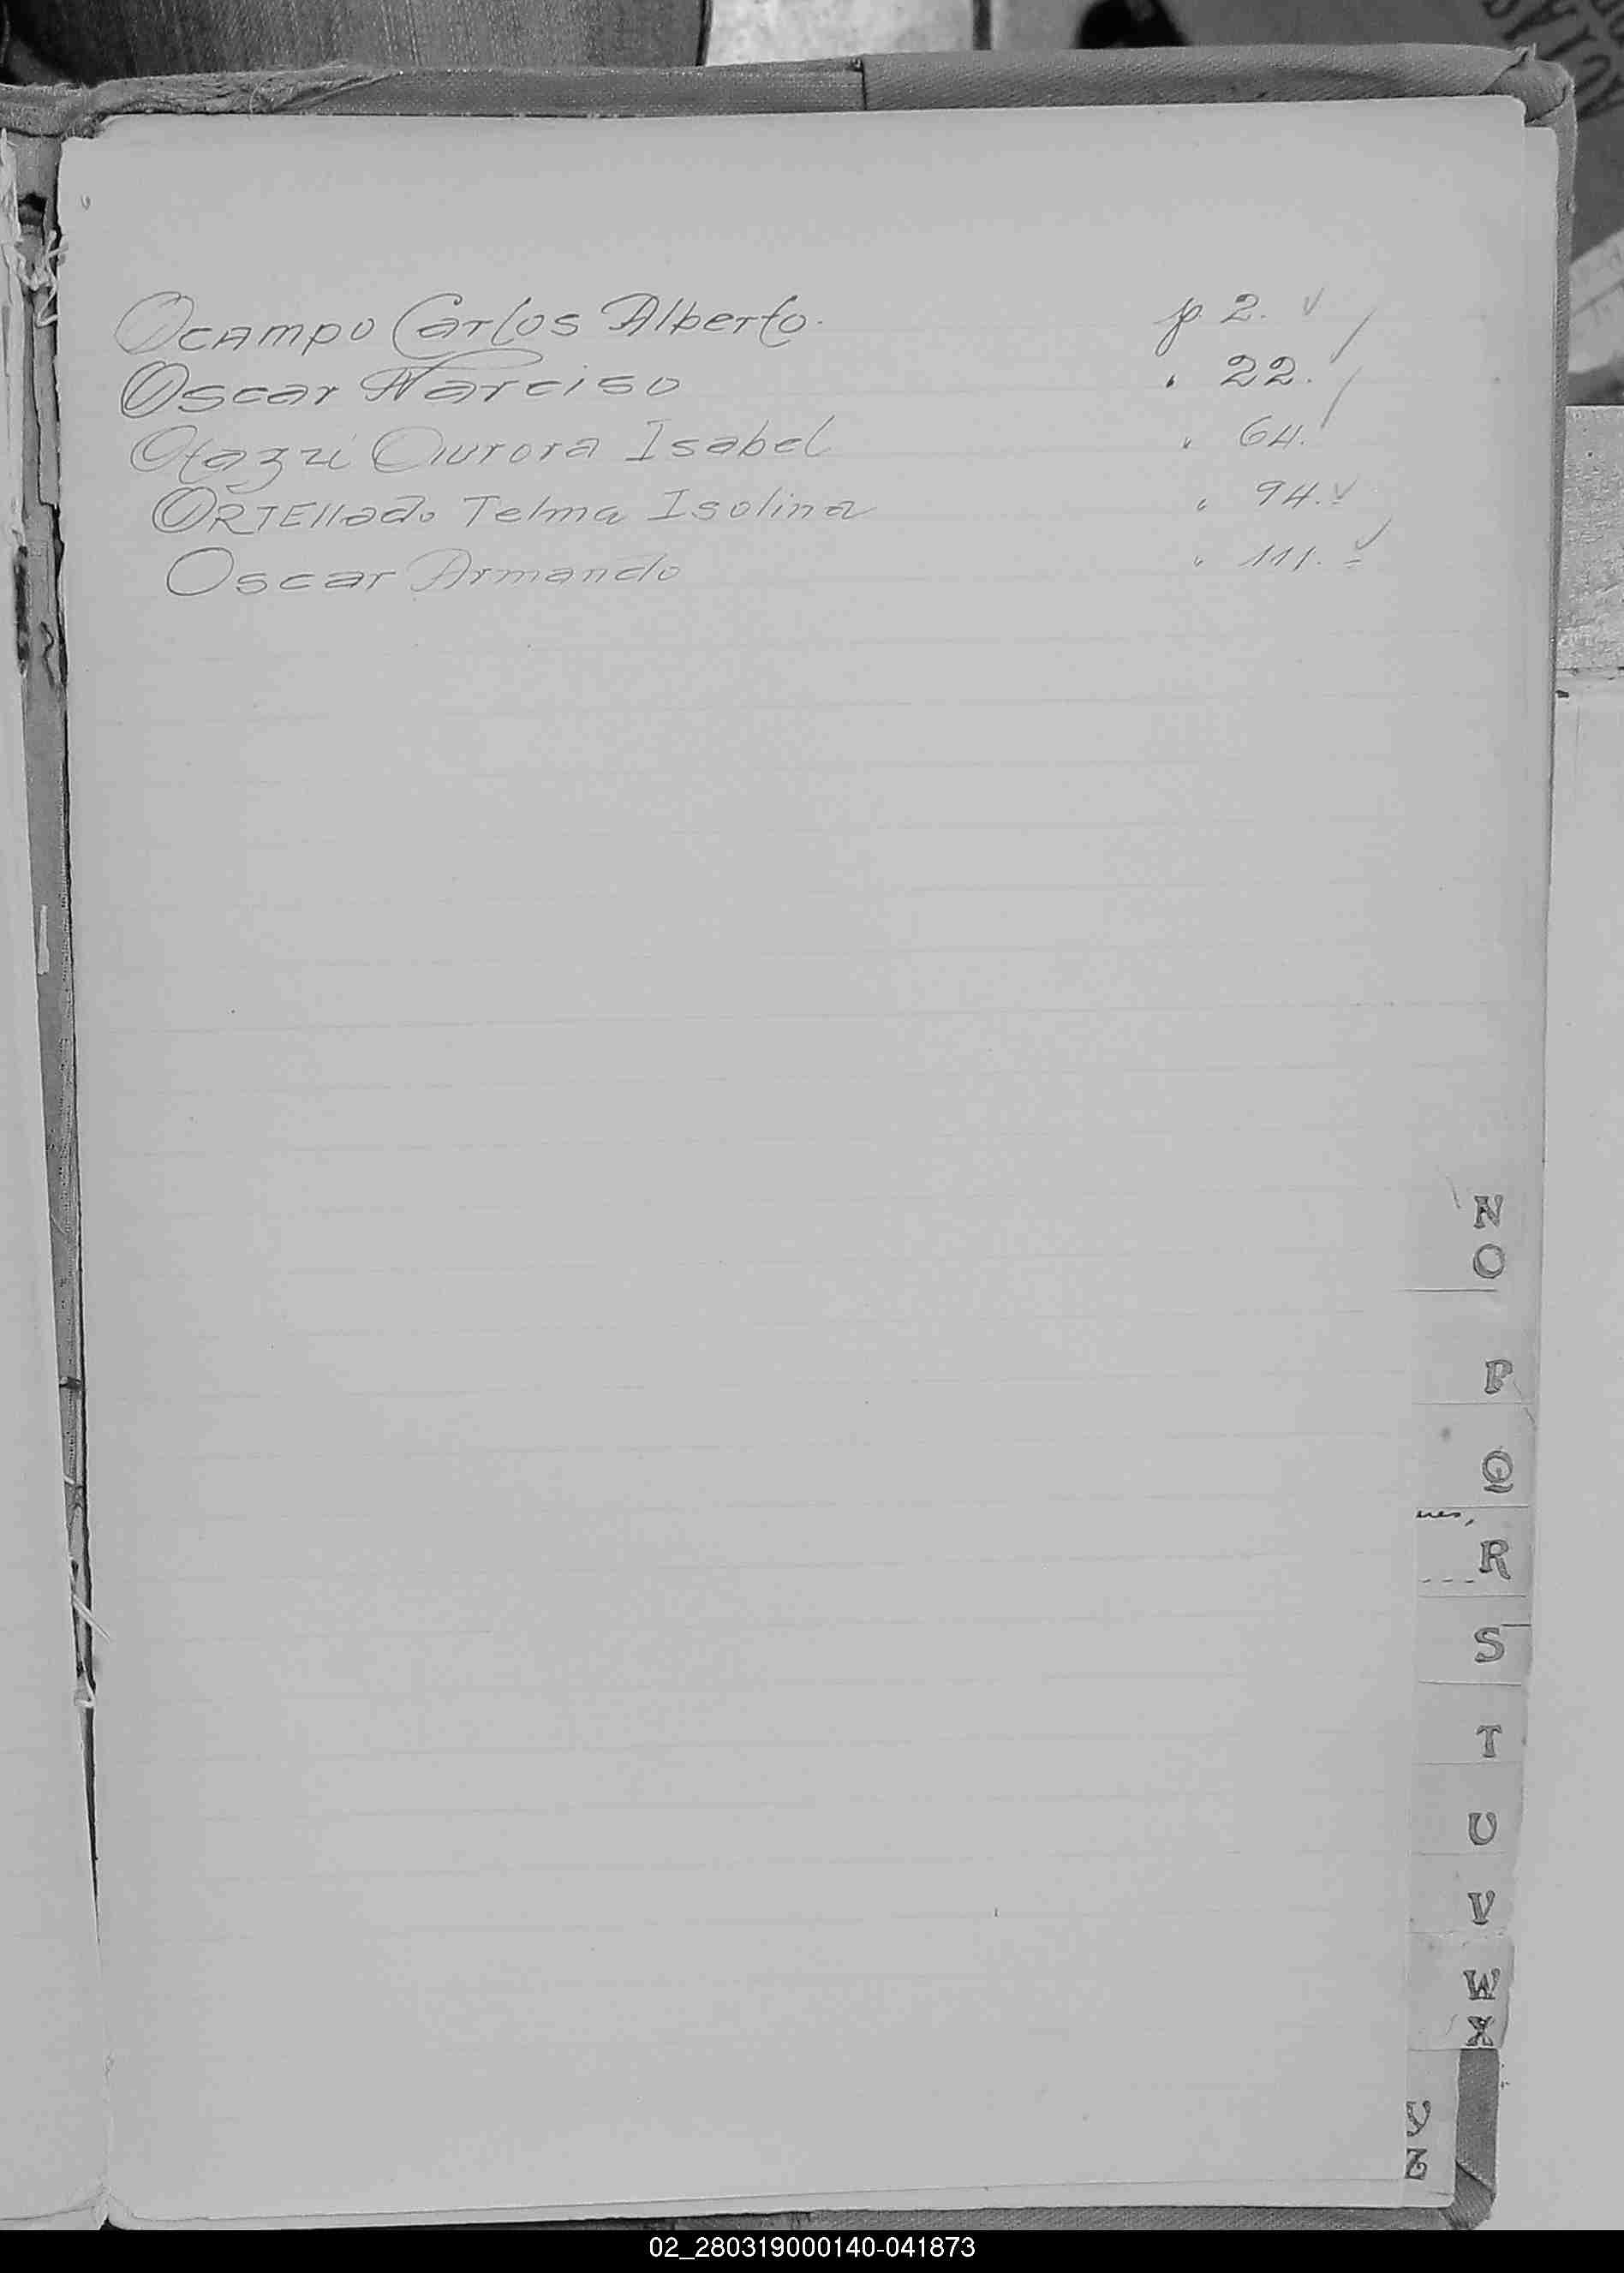 Ocampo Carlos Alberto. p 2. ✓
Oscar Narciso " 22. /
Otazú Aurora Isabel " 64. /
ORTEllado Telma Isolina " 94. ✓
Oscar Armando " 111. ✓
N
O
P
Q
R
S
T
U
V
W
X
Y
Z
02_280319000140-041873